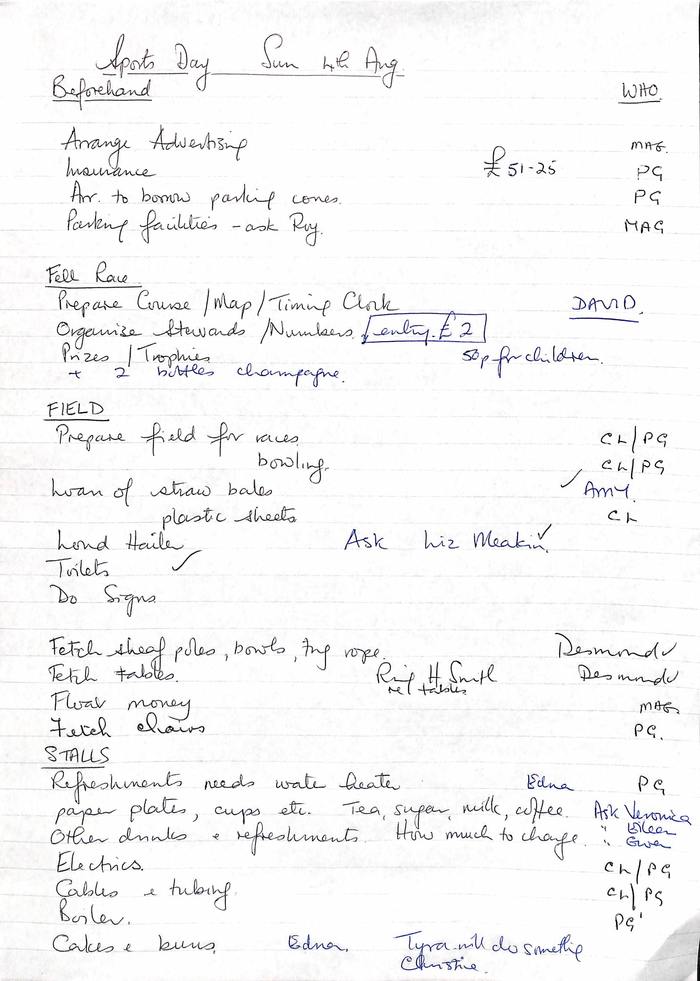 Sports Day Sun 4th Aug.
Beforehand WHO
Arrange Advertizing MAG.
Insurance £51-25 PG
Arr. to borrow parking cones. PG
Parking facilities - ask Roy. MAG
Fell Race
Prepare Course / Map / Timing Clock DAVID.
Organize Stewards / Numbers. entry £2
Prizes / Trophies 50p for children.
+ 2 bottles champagne.
FIELD
Prepare field for races CH/PG
bowling. CH/PG
Loan of straw bales ✓ AMY.
plastic sheets CH
Loud Hailer Ask Liz Meakin ✓
Toilets ✓
Do Signs
Fetch sheaf poles, bowls, tug rope. Desmond ✓
Fetch tables. Ring H Smith Desmond ✓
re/ tables
Float money MAG
Fetch chairs PG.
STALLS
Refreshments needs water heater Edna PG
paper plates, cups etc. Tea, sugar, milk, coffee. Ask Veronica
Other drinks & refreshments. How much to charge. " Eileen
" Gwen
Electrics. CH/PG
Cables & tubing. CH/PG
Boiler. PG
Cakes & buns. Edna. Tyra will do something
Christine.